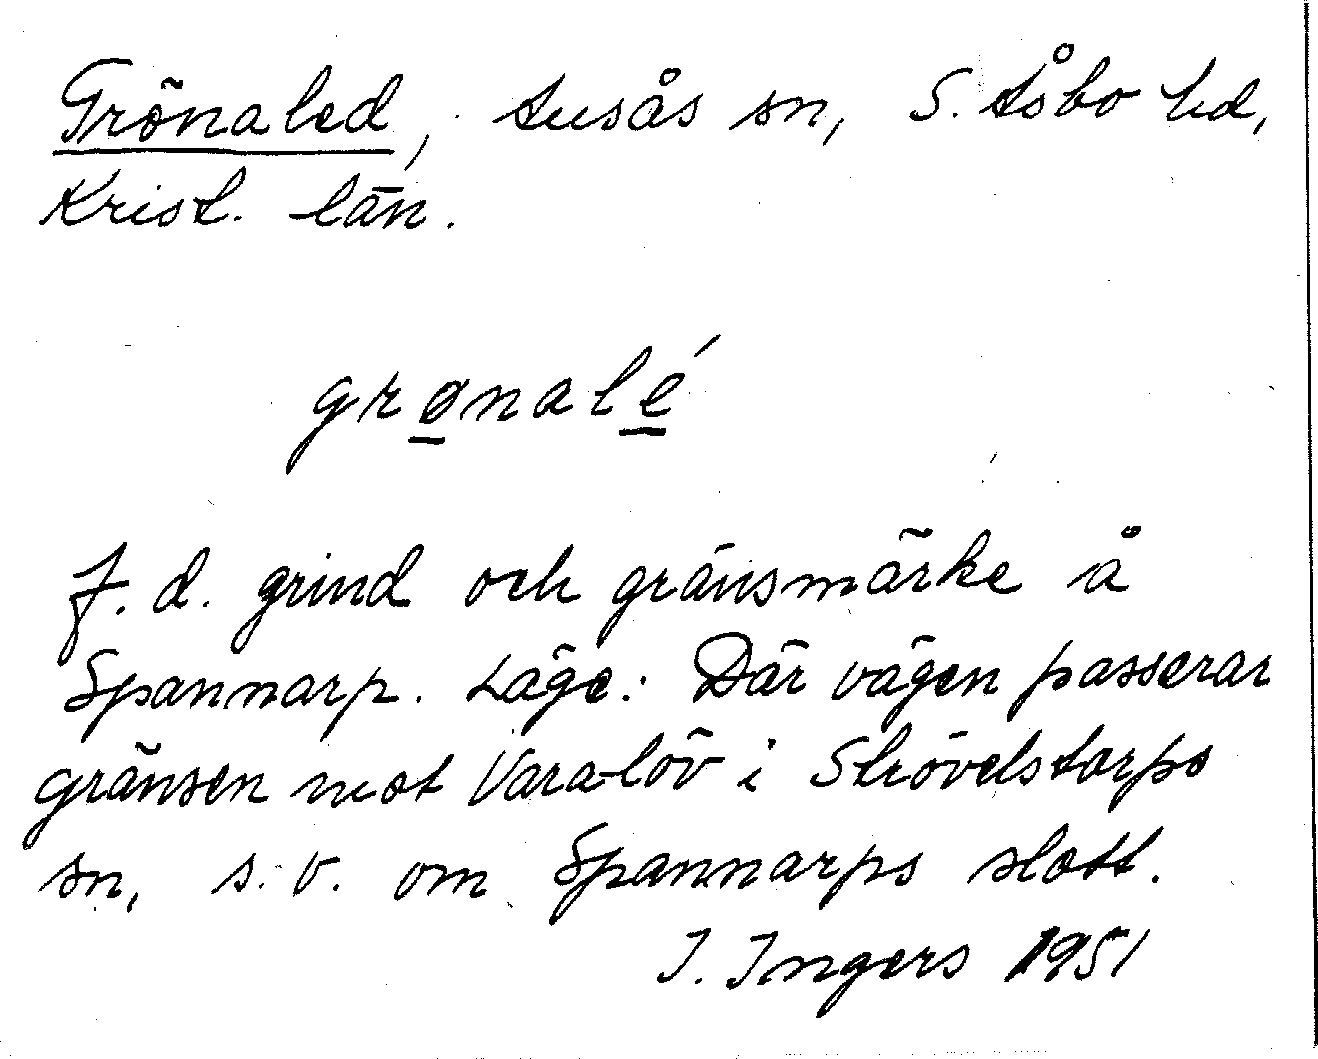 Grönaled, Ausås sn, S. Åsbo hd,
Krist. län.
grønalé
f. d. grind och gränsmärke å
Spannarp. Läge: Där vägen passerar
gränsen mot Varalöv i Strövelstorps
sn, s. v. om Spannarps slott.
I. Ingers 1951